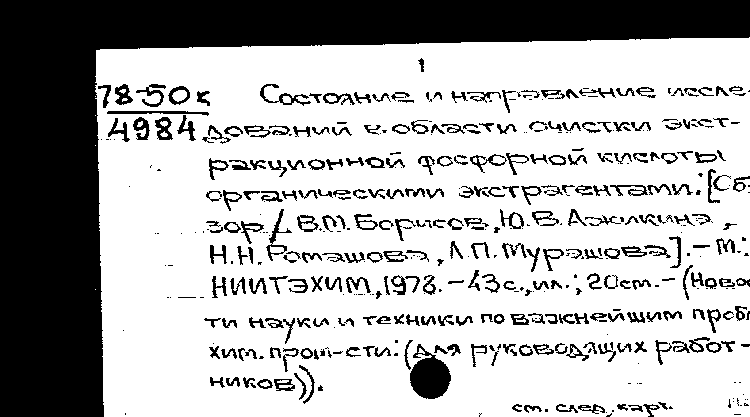 1
78-50к Состояние и направление иссле-
4984 дований в области очистки экст-
ракционной фосфорной кислоты
органическими экстрагентами: [Об-
зор / В.М. Борисов, Ю.В. Ажикина,
Н.Н. Ромашова, Л.П. Мурашова]. – М.:
НИИТЭХИМ, 1978. – 43с., ил.; 20см. – (Новос
ти науки и техники по важнейшим пробл
хим. пром-сти: (для руководящих работ-
ников)).
см. след. карт.